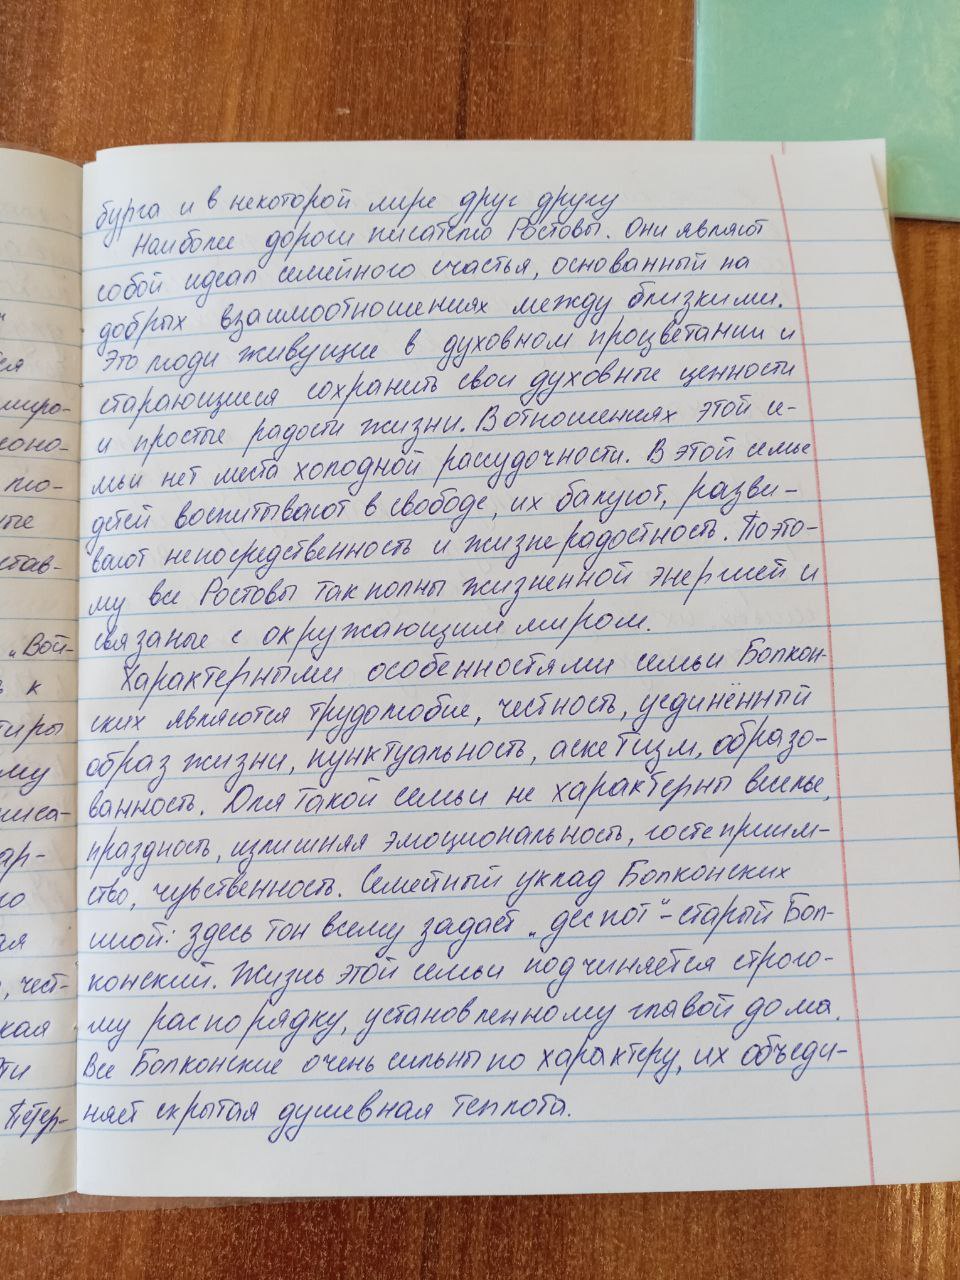 бурга и в некоторой мире друг другу
Наиболее дороги писателю Ростовы. Они являют
собой идеал семейного счастья, основанный на
добрых взаимоотношениях между близкими.
Это люди живущие в духовном процветании и
старающиеся сохранить свои духовные ценности
и простые радости жизни. В отношениях этой се-
мьи нет места холодной рассудочности. В этой семье
детей воспитывают в свободе, их балуют, разви-
вают непосредственность и жизнерадостность. Поэто-
му все Ростовы так полны жизненной энергией и
связаные с окружающим миром.
Характерными особенностями семьи Болкон-
ских являются трудолюбие, честность, уединённый
образ жизни, пунктуальность, аскетизм, образо-
ванность. Для такой семьи не характерны веселье,
праздность, излишняя эмоциональность, гостеприим-
ство, чувственность. Семейный уклад Болконских
иной: здесь тон всему задает „деспот" - старый Бол-
конский. Жизнь этой семьи подчиняется строго-
му распорядку, установленному главой дома.
Все Болконские очень сильны по характеру, их объеди-
няет скрытая душевная теплота.
„Вой-
в к
тиры
ому
писа-
ар-
ая
, чест-
кая
Петер-